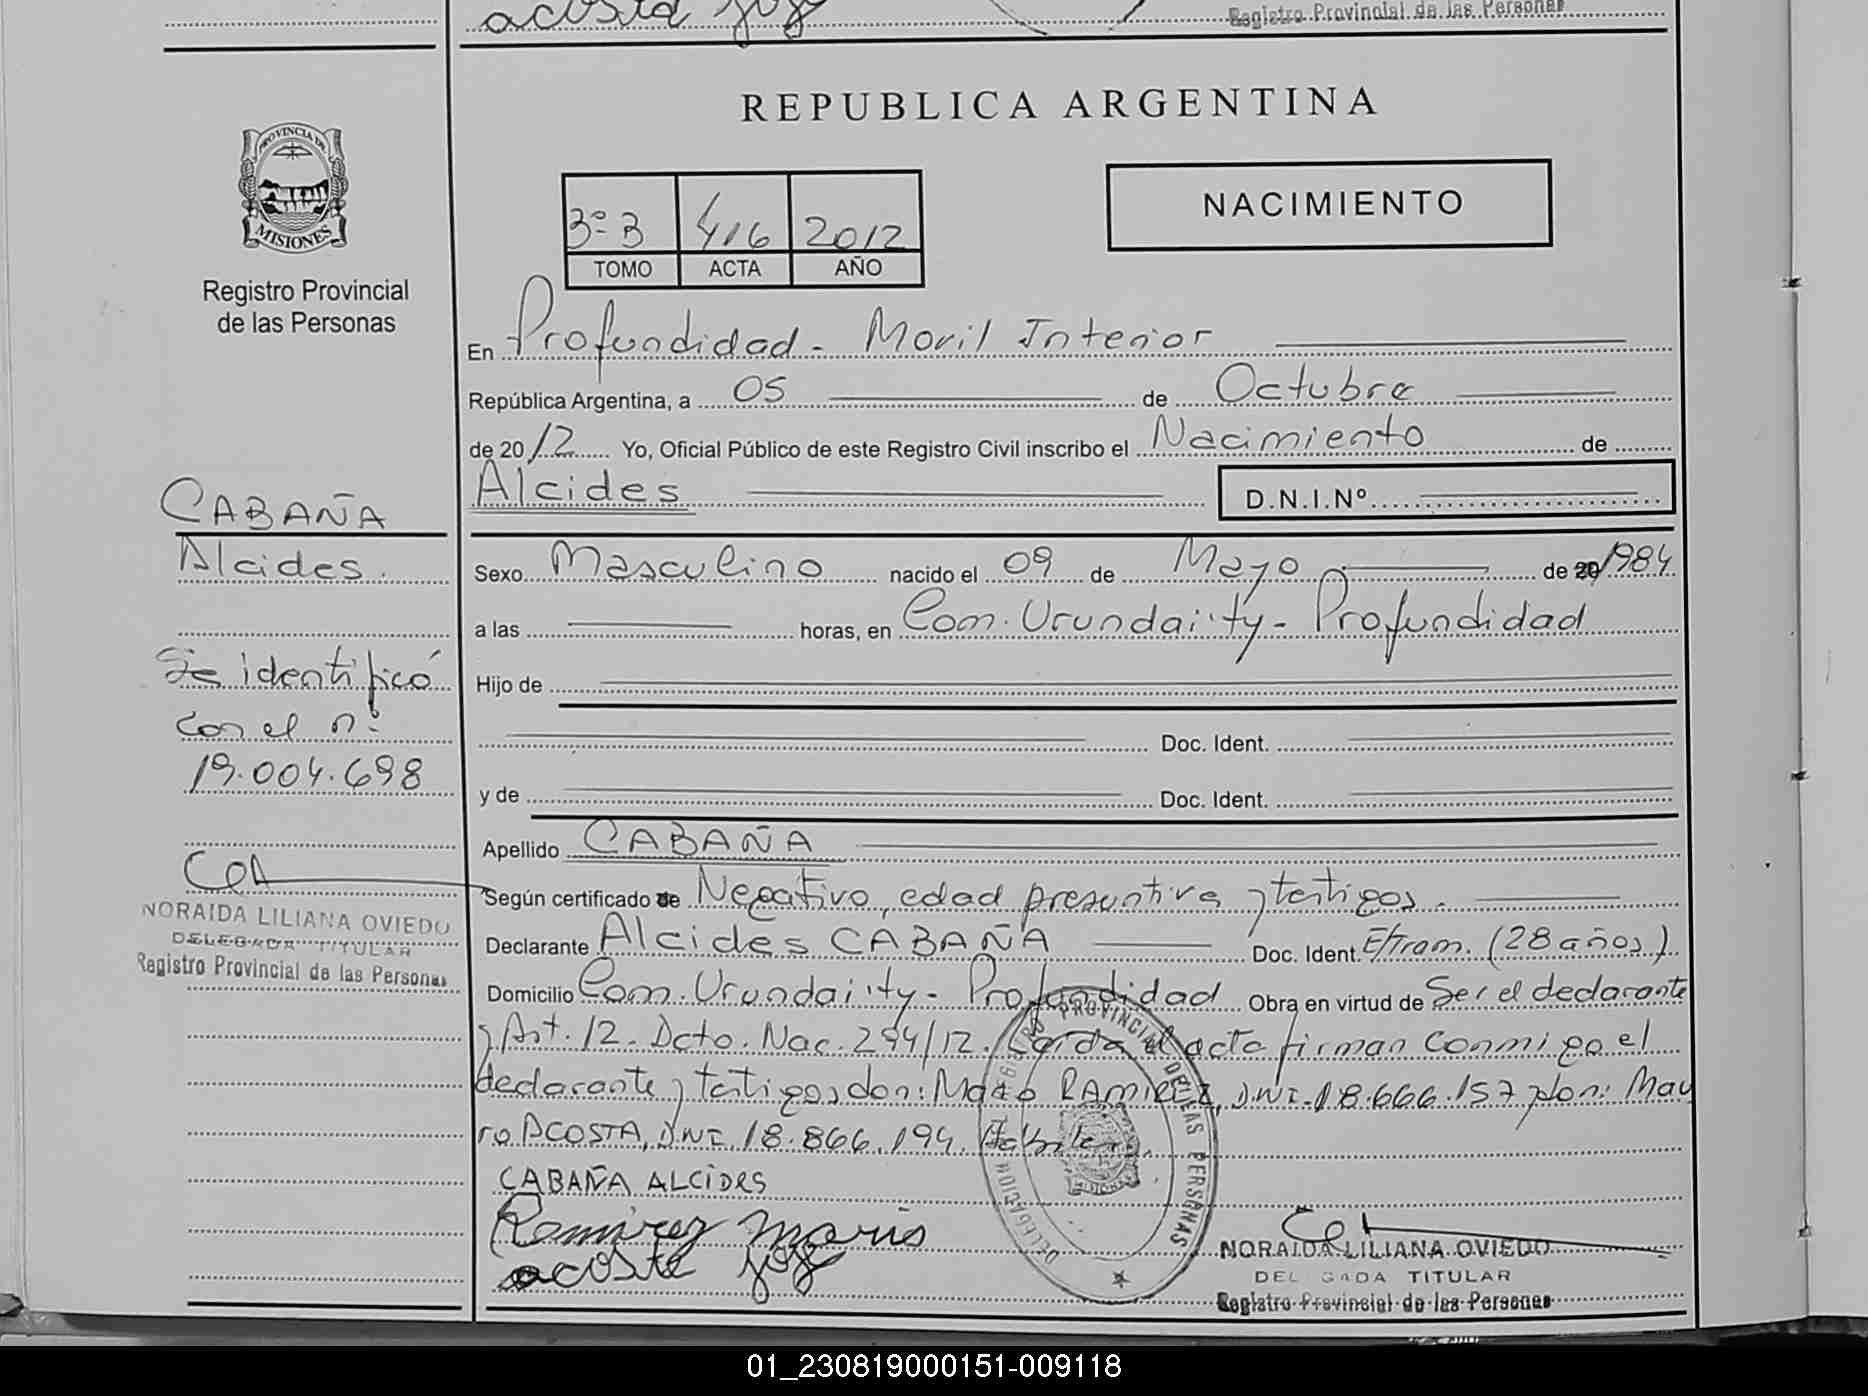 acosta
Registro Provincial de las Personas
REPUBLICA ARGENTINA
PROVINCIA DE
MISIONES
Registro Provincial
de las Personas
3º B 416 2012
TOMO ACTA AÑO
NACIMIENTO
En Profundidad - Movil Interior
República Argentina, a 05 de Octubre
de 2012 Yo, Oficial Público de este Registro Civil inscribo el Nacimiento de
Alcides D.N.I.Nº
CABAÑA
Alcides.
Se identificó
con el nº
19.004.698
NORAIDA LILIANA OVIEDO
DELEGADA TITULAR
Registro Provincial de las Personas
Sexo Masculino nacido el 09 de Mayo de 20 1984
a las horas, en Com. Urundai'ty - Profundidad
Hijo de
Doc. Ident.
y de Doc. Ident.
Apellido CABAÑA
Según certificado de Negativo, edad presuntiva y testigos.
Declarante Alcides CABAÑA Doc. Ident. E/tram. (28 años)
Domicilio Com. Urundai'ty - Profundidad Obra en virtud de Ser el declarante
y Art. 12. Dcto. Nac. 294/12. Leída el acta firman conmigo el
declarante y testigos don: Mario RAMIREZ, DNI. 18.666.157 y don: Mau
ro ACOSTA, DNI. 18.866.194.
CABAÑA ALCIDES
Ramirez Mario
acosta
PROVINCIAL DE LAS PERSONAS
NORAIDA LILIANA OVIEDO
DELEGADA TITULAR
Registro Provincial de las Personas
01_230819000151-009118